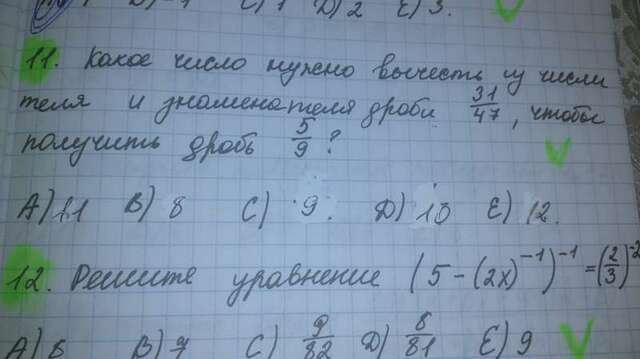 C) 1 D) 2 E) 3.
11. Какое число нужно вычесть из числи
теля и знаменателя дроби 31/47, чтобы
получить дробь 5/9?
A) 11 B) 8 C) 9. D) 10 E) 12.
12. Решите уравнение (5-(2x)^-1)^-1=(2/3)^-2
A) 6 B) 7 C) 9/82 D) 8/81 E) 9